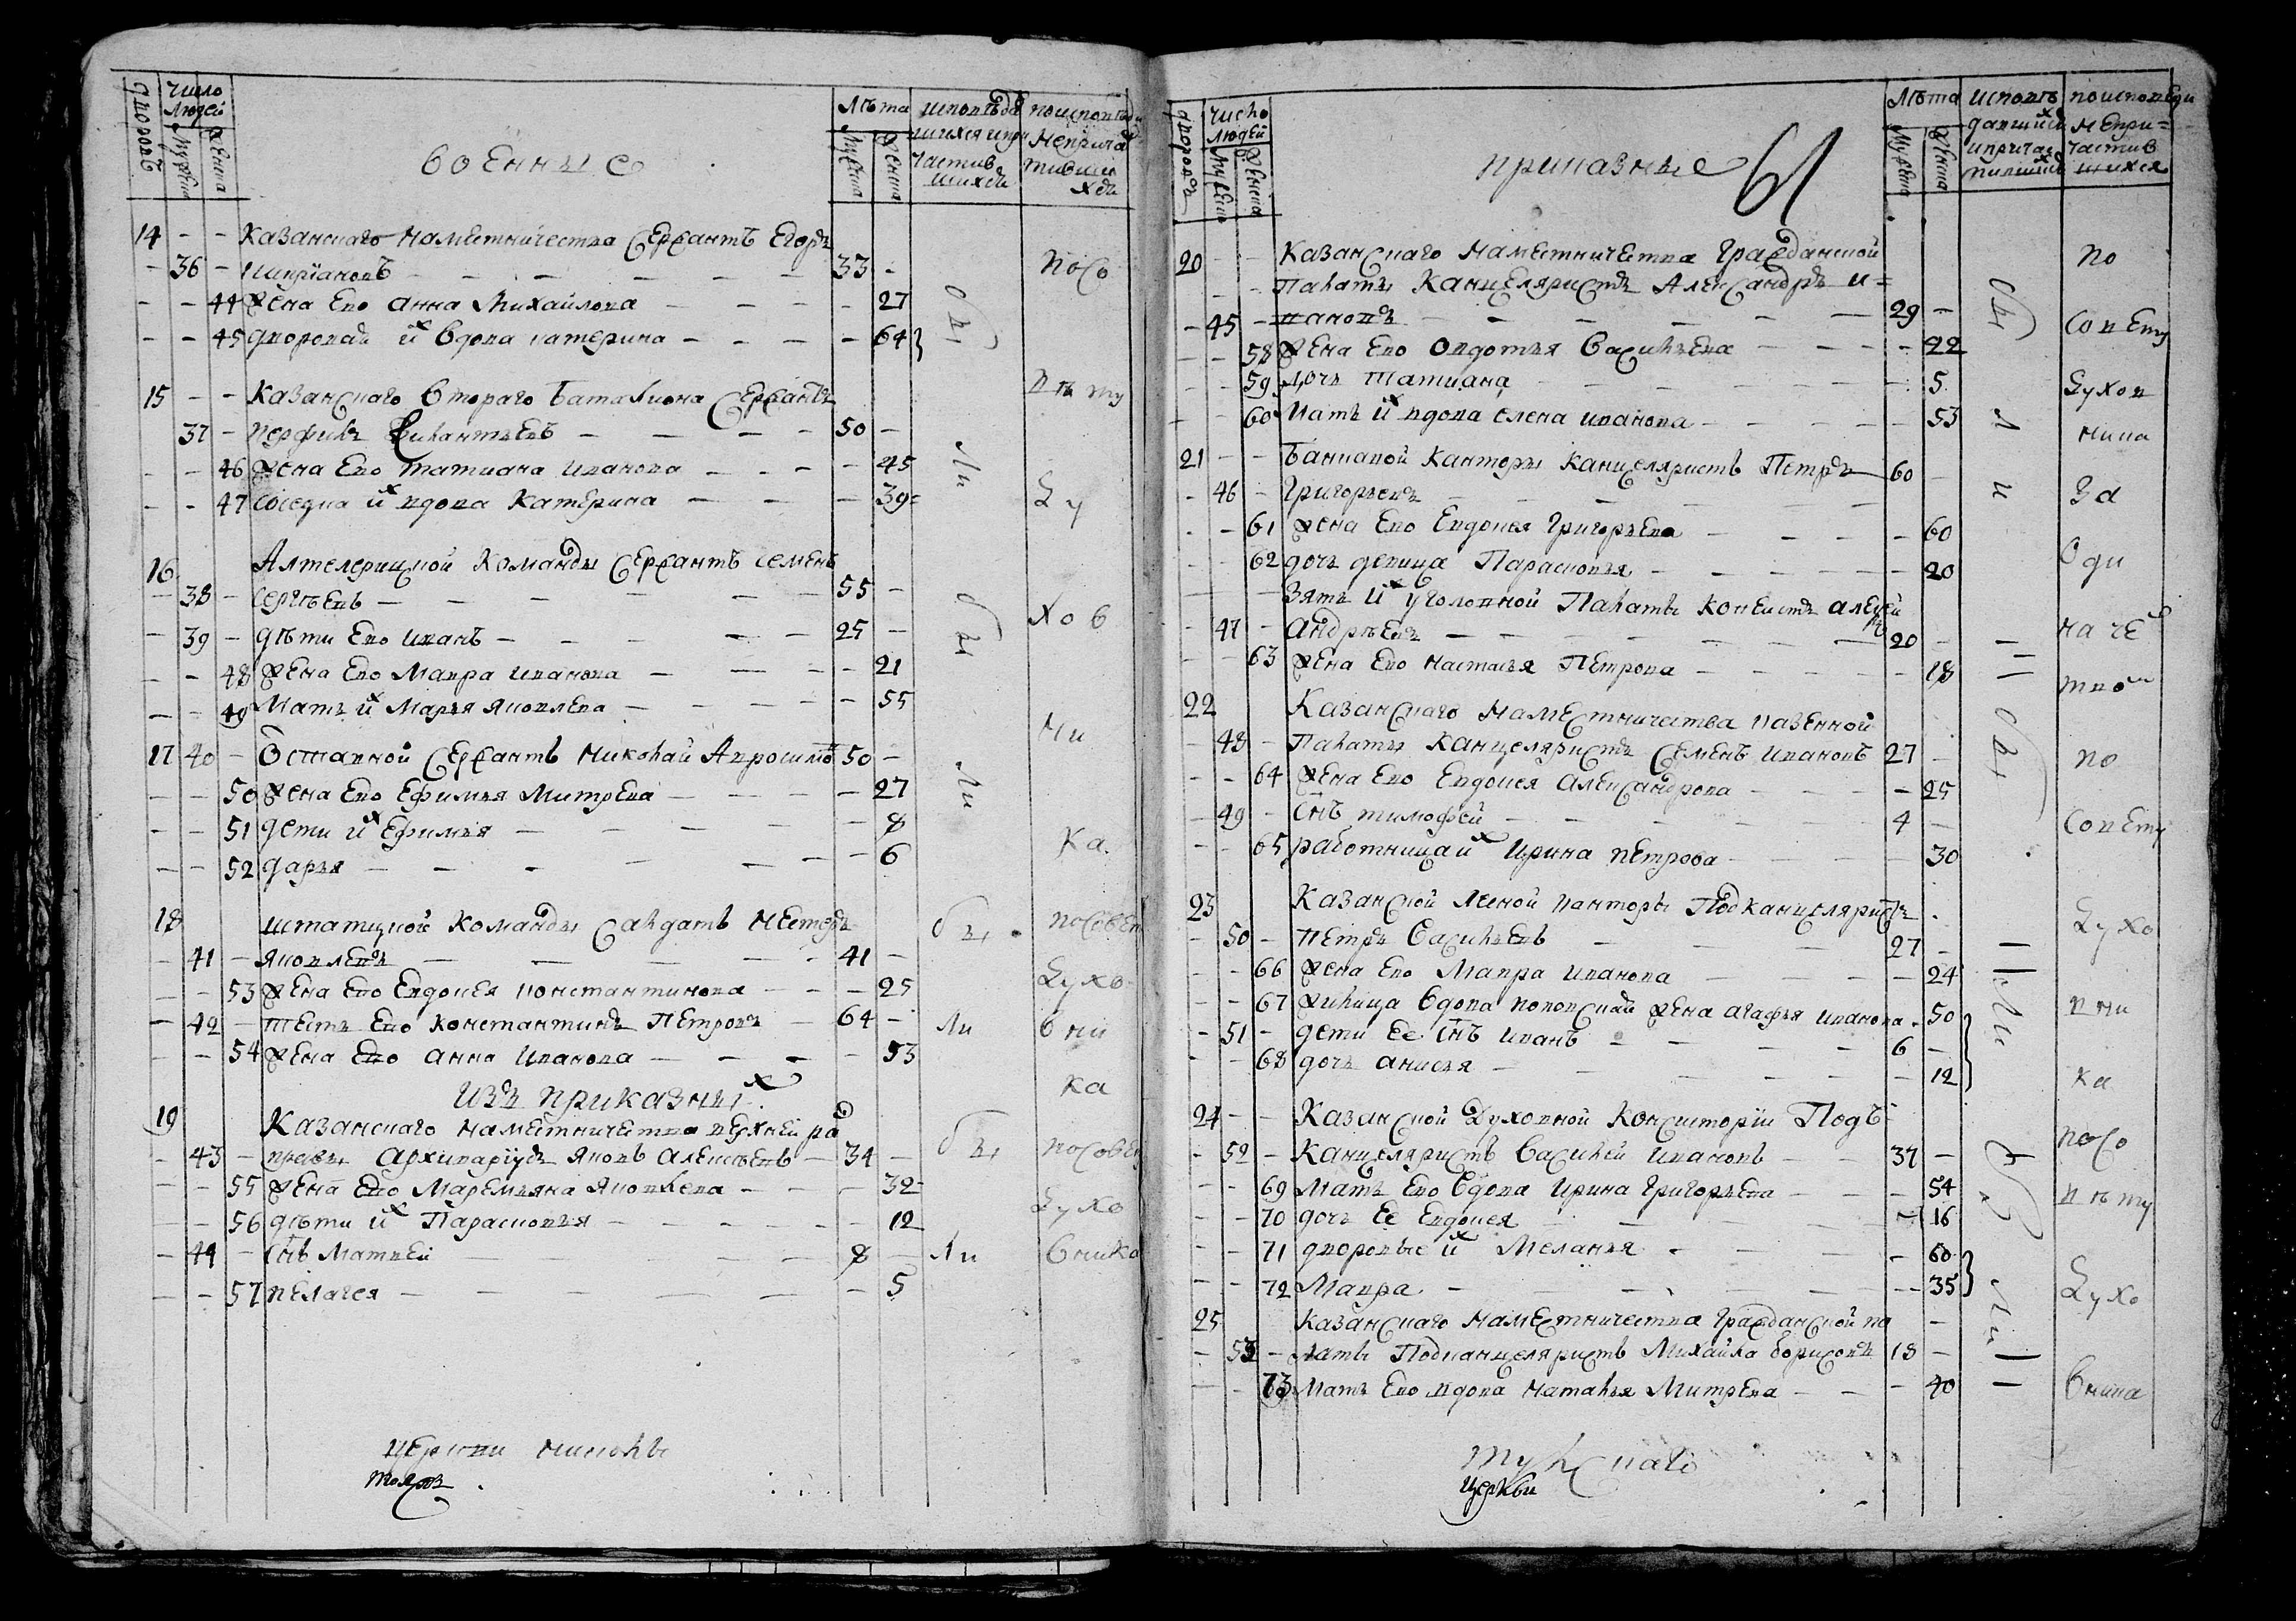 дворовъ
число людей
мужеска
женска
военныя
лѣта
мужеска
женска
исповѣдавшихся и причастившихся
по исповѣди не причастившихся
14 - - Казанскаго намѣстничества сержантъ Егоръ
- 36 - Киприановъ - - - - - 33 -
- - 44 жена Ево Анна Михайлова - - - - 27
- - 45 дворовая их вдова катерина - - - - 64
15 - - Казанскаго втораго баталиона сержантъ
37 - Перфилъ - - - - 50 -
- - 46 жена Ево татиана иванова - - - - 45
- - 47 соседка их вдова Катерина - - - 39
16 Алтелерицкой Команды сержантъ семенъ
- 38 - сергѣевъ - - - - - 55 -
- 39 - дѣти Ево иванъ - - - - - 25 -
- - 48 жена Ево Мавра иванова - - - - 21
- - 49 Мать их Марья Яковлева - - - - - 55
17 40 - Оставной сержантъ Николай 50 -
- - 50 жена Ево Ефимья Митрева - - - - 27
- - 51 дети их Ефимья - - - - - 8
- - 52 дарья - - - - - - 6
18 штатцкой Команды салдатъ Нестеръ
- 41 - Яковлевъ - - - - 41 -
- - 53 жена Ево Евдокея константинова - - - 25
- 42 - тесть Ево Константинъ Петровъ - 64 -
- - 54 жена Ево Анна Иванова - - - - - 53
изъ приказных
19 Казанскаго намѣстничества верхней рас
- 43 - правы Архивариусъ Яковъ алексѣевъ - 34 -
- - 55 жена Ево Маремьяна Яковлева - - - 32
- - 56 дѣти их Парасковья - - - - - - 12
- 44 - снъ Матвей - - - 8
- - 57 пелагея - - - - - - - 5
бы
ли
бы
ли
бы
ли
бы
ли
по со
вѣ ту
ду
хов
ни
ка
по совет
духо
вни
ка
по совет
духо
вника
церкви николы
дворовъ
число людей
мужеска
женска
приказные
лѣта
мужеска
женска
исповѣдавшихся и причастившихся
по исповѣди не причастившихся
20 - - Казанскаго Намѣстничества Гражданской
- - Палаты Канцеляристъ Александръ и=
- 45 - вановъ - - - - - 29 -
- - 58 жена Ево Овдотья Васильева - - - - 22
- - 59 дочь татиана - - - - - 5
- - 60 Мать их вдова Елена иванова - - - - 53
21 - - Банковой Канторы Канцеляристъ Петръ 60
- 46 - Григорьевъ - - - - -
- - 61 жена Ево Евдокея Григорьева - - - - 60
- - 62 дочь девица Парасковья - - - - - 20
- - - Зять их уголовной Палаты Копеистъ алексей
- 47 - Андрѣевъ - - - - - 20 - -
- - 63 жена Ево настасья Петрова - - - - - 18
22 Казанскаго намѣстничества казенной
- 48 - Палаты Канцеляристъ Семенъ Ивановъ 27 -
- - 64 жена Ево Евдокея Александрова - - - - 25
- 49 - снъ тимофей - - - - - 4 -
- - 65 работница их Ирина петрова - - - - 30
23 Казанской Лесной канторы Подканцеляристъ
- 50 - Петръ Васильевъ - - - 27 -
- - 66 жена Ево Мавра иванова - - - - 24
- - 67 жилица вдова поповская жена агафья иванова - 50
- 51 - дети Ее снъ иванъ - - - - 6 -
- - 68 дочь анисья - - - - - 12
24 - - Казанской Духовной Консистории Подъ
- 52 - Канцеляристъ Василей ивановъ - - 37 -
- - 69 Мать Ево вдова Ирина Григорьева - - - 54
- - 70 дочь Ее Евдокея - - - - 16
- - 71 дворовые их Меланья - - - - 60
- - 72 Мавра - - - - - - 35
25 Казанскаго намѣстничества Гражданской па
- 53 - латы Подканцеляристъ Михайла борисовъ 18 -
- - 73 Мать Ево вдова наталья Митрева - - - 40
бы
л
и
бы
ли
бы
ли
по
совету
духов
ника
за
оди
на че
по
совету
духо
вни
ка
по со
вѣ ту
духо
вника
тульскаго
церкви